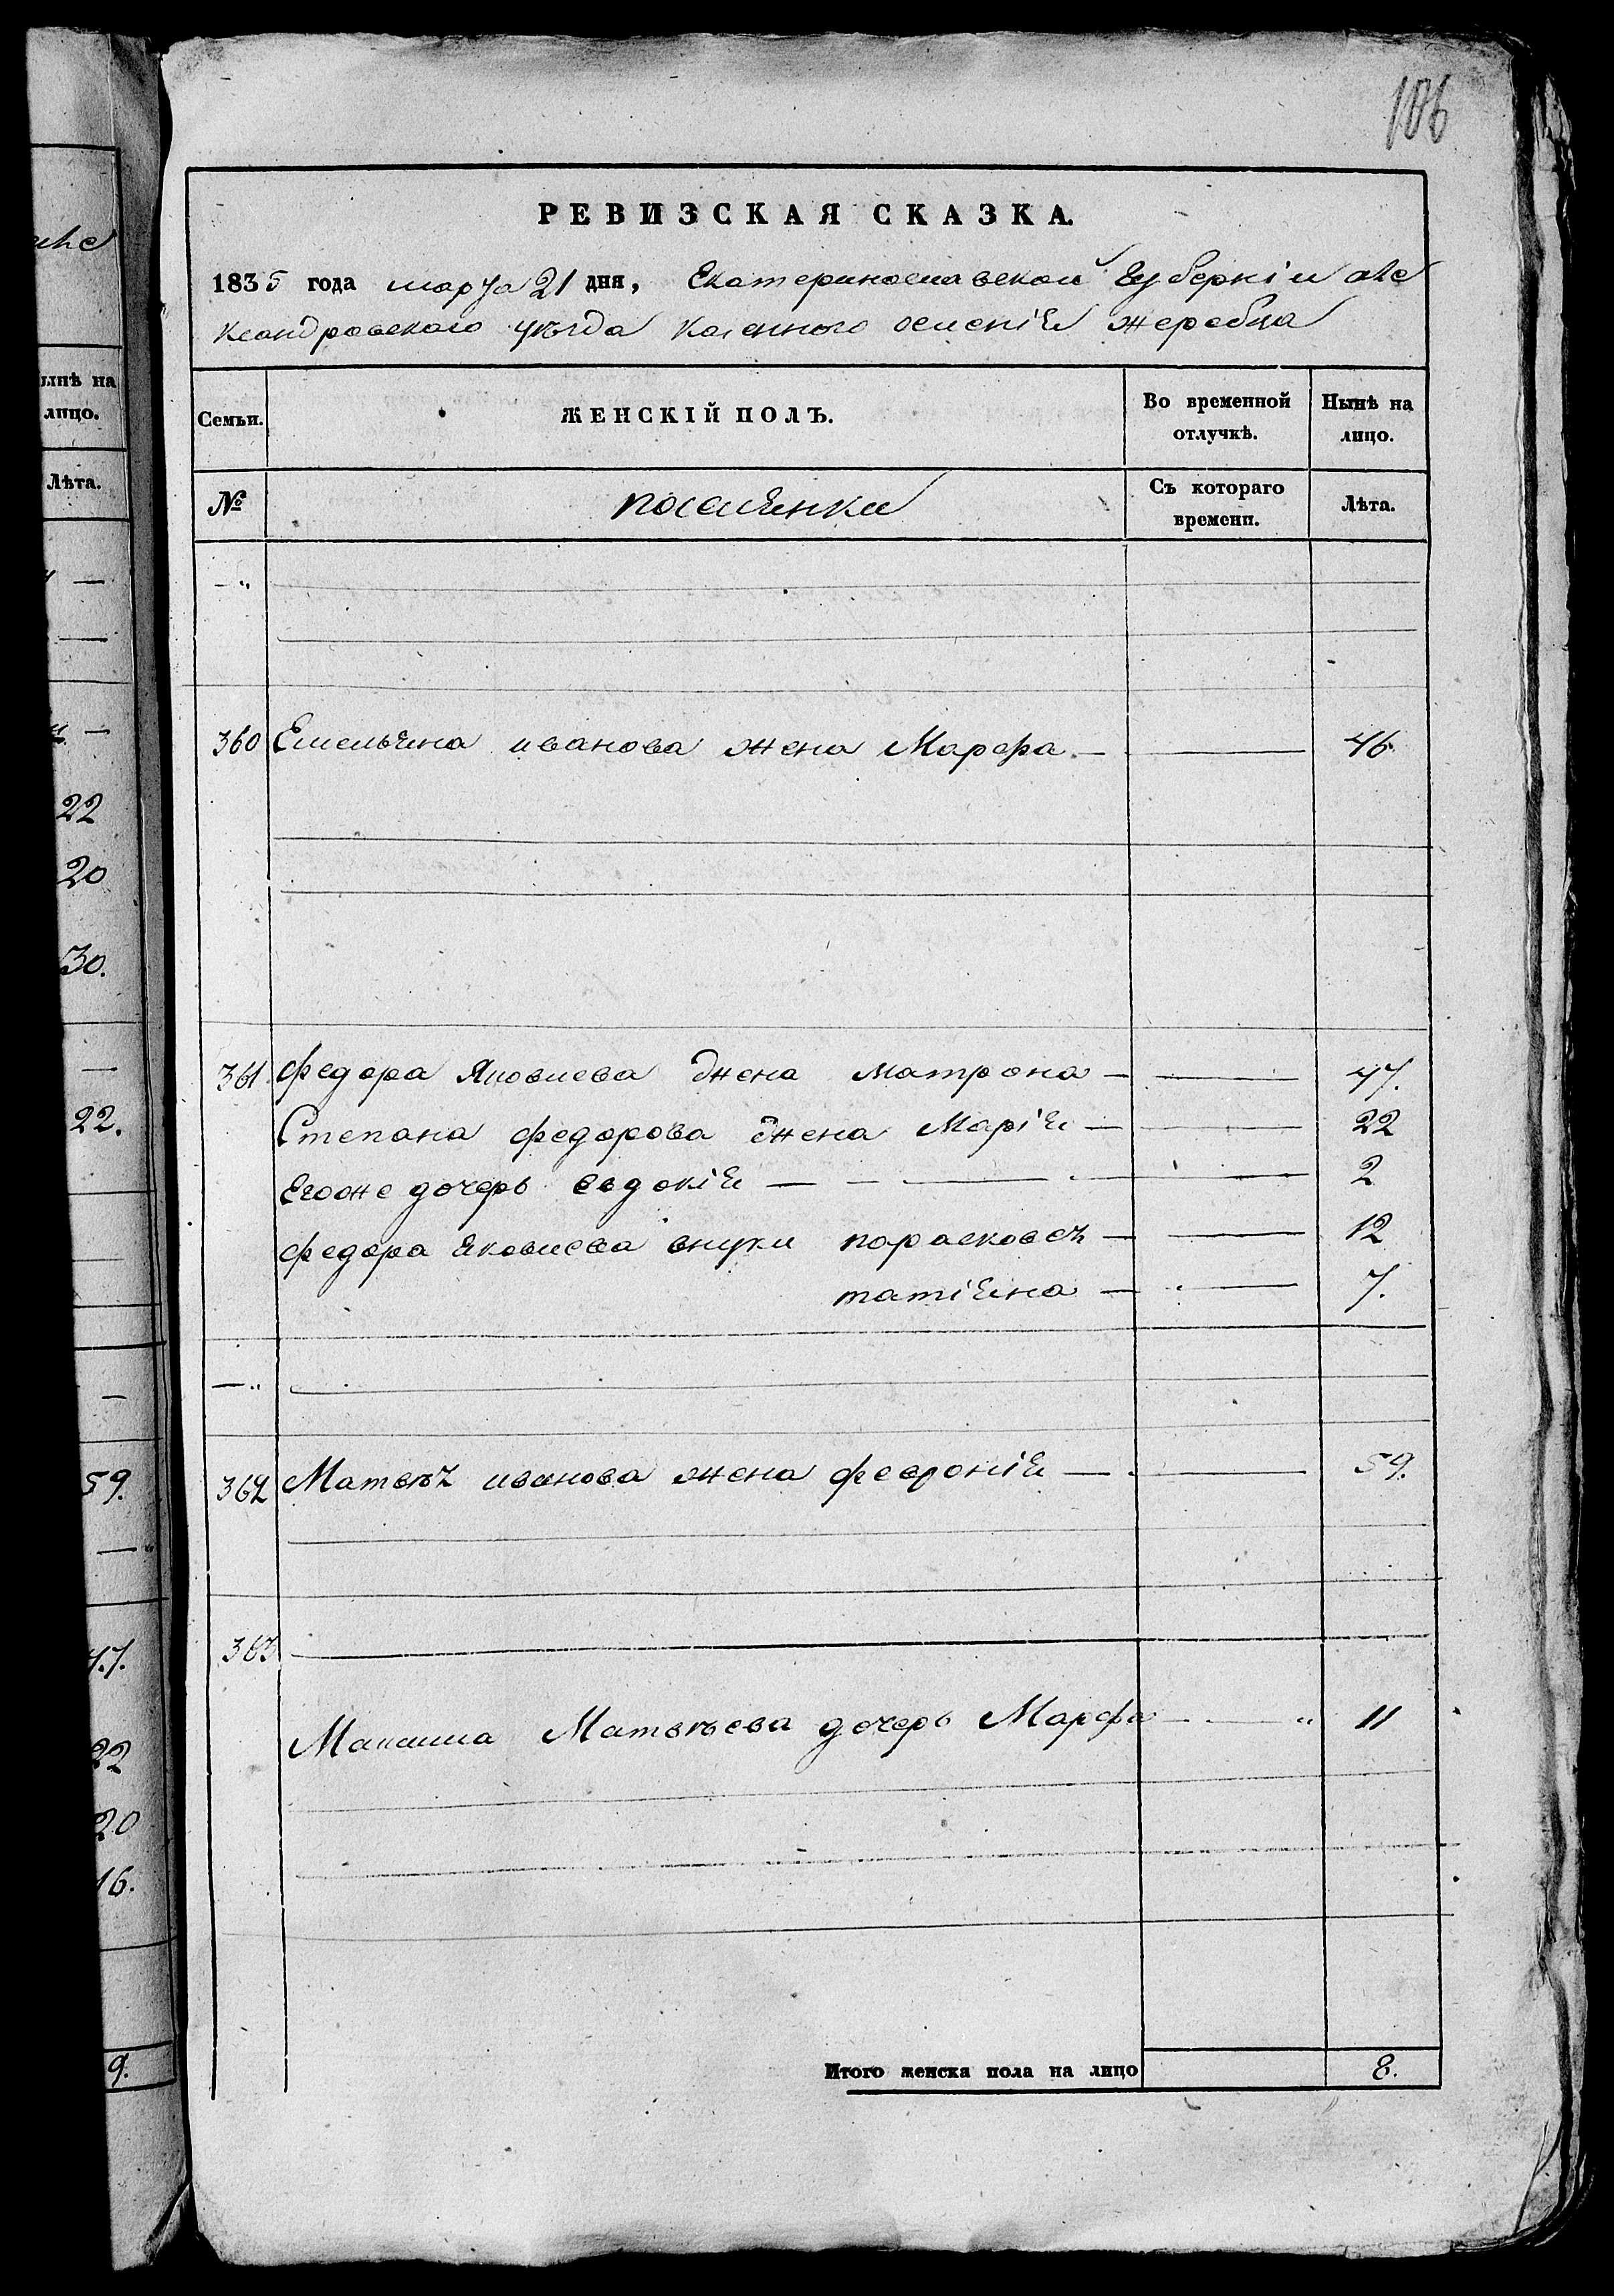 106
РЕВИЗСКАЯ СКАЗКА.
1835 года марта 21 дня, Екатеринославской Губерніи але
ксандровского уѣзда казенного селенія жеребца
Семьи.
ЖЕНСКІЙ ПОЛЪ.
Во временной отлучкѣ.
Нынѣ на лицо.
№
поселянки
Съ котораго времени.
Лѣта.
360 Емельяна иванова жена Марфа 46
361 федора Яковлева жена матрона 47.
Степана федорова жена Марія 22
Егоже дочерь евдокія 2
федора яковлева внуки парасковея 12
татіяна 7.
362 Матвѣя иванова жена февронія 59.
363
Максима Матвѣева дочерь Марфа 11
Итого женска пола на лицо 8.
ынѣ на
лицо.
Лѣта.
22
20
30.
22.
59.
47.
22
20
16.
9.